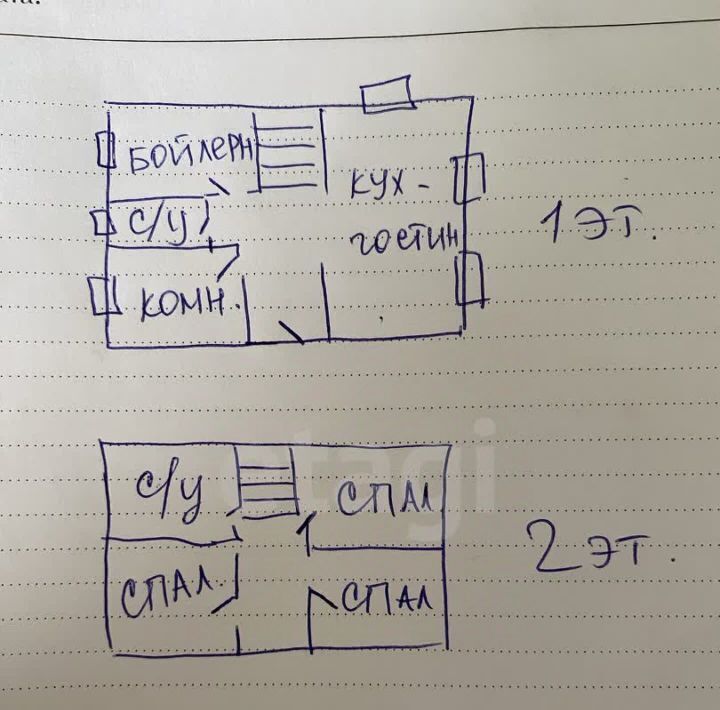 БОЙЛЕРН
С/У
КУХ-
ГОСТИН
КОМН.
1 ЭТ.
С/У
СПАЛ
СПАЛ.
СПАЛ
2 ЭТ.
etagi